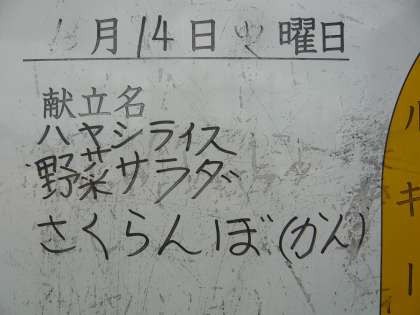 6月14日火曜日
献立名
ハヤシライス
野菜サラダ
さくらんぼ(かん)
ハ
キ
ー